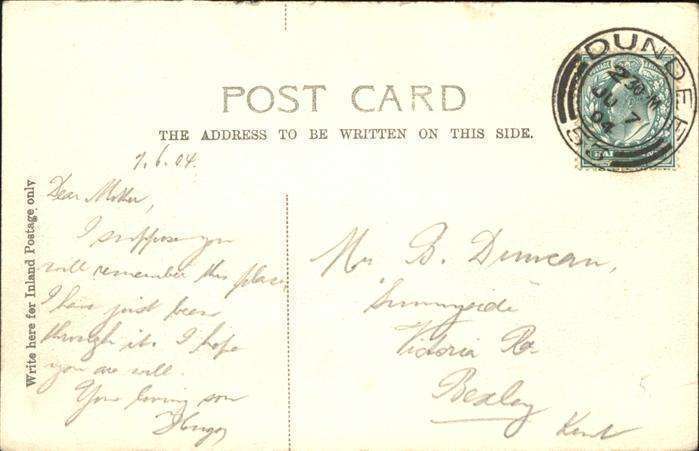 POST CARD
THE ADDRESS TO BE WRITTEN ON THIS SIDE.
Write here for Inland Postage only
7.6.04.
Dear Mother,
I suppose you
will remember this place,
I have just been
through it. I hope
you are well.
Your loving son
B. Duncan,
"Sunnyside"
Victoria Rd.
Bexley
Kent
DUNDEE
2 30 PM
JU 7
04